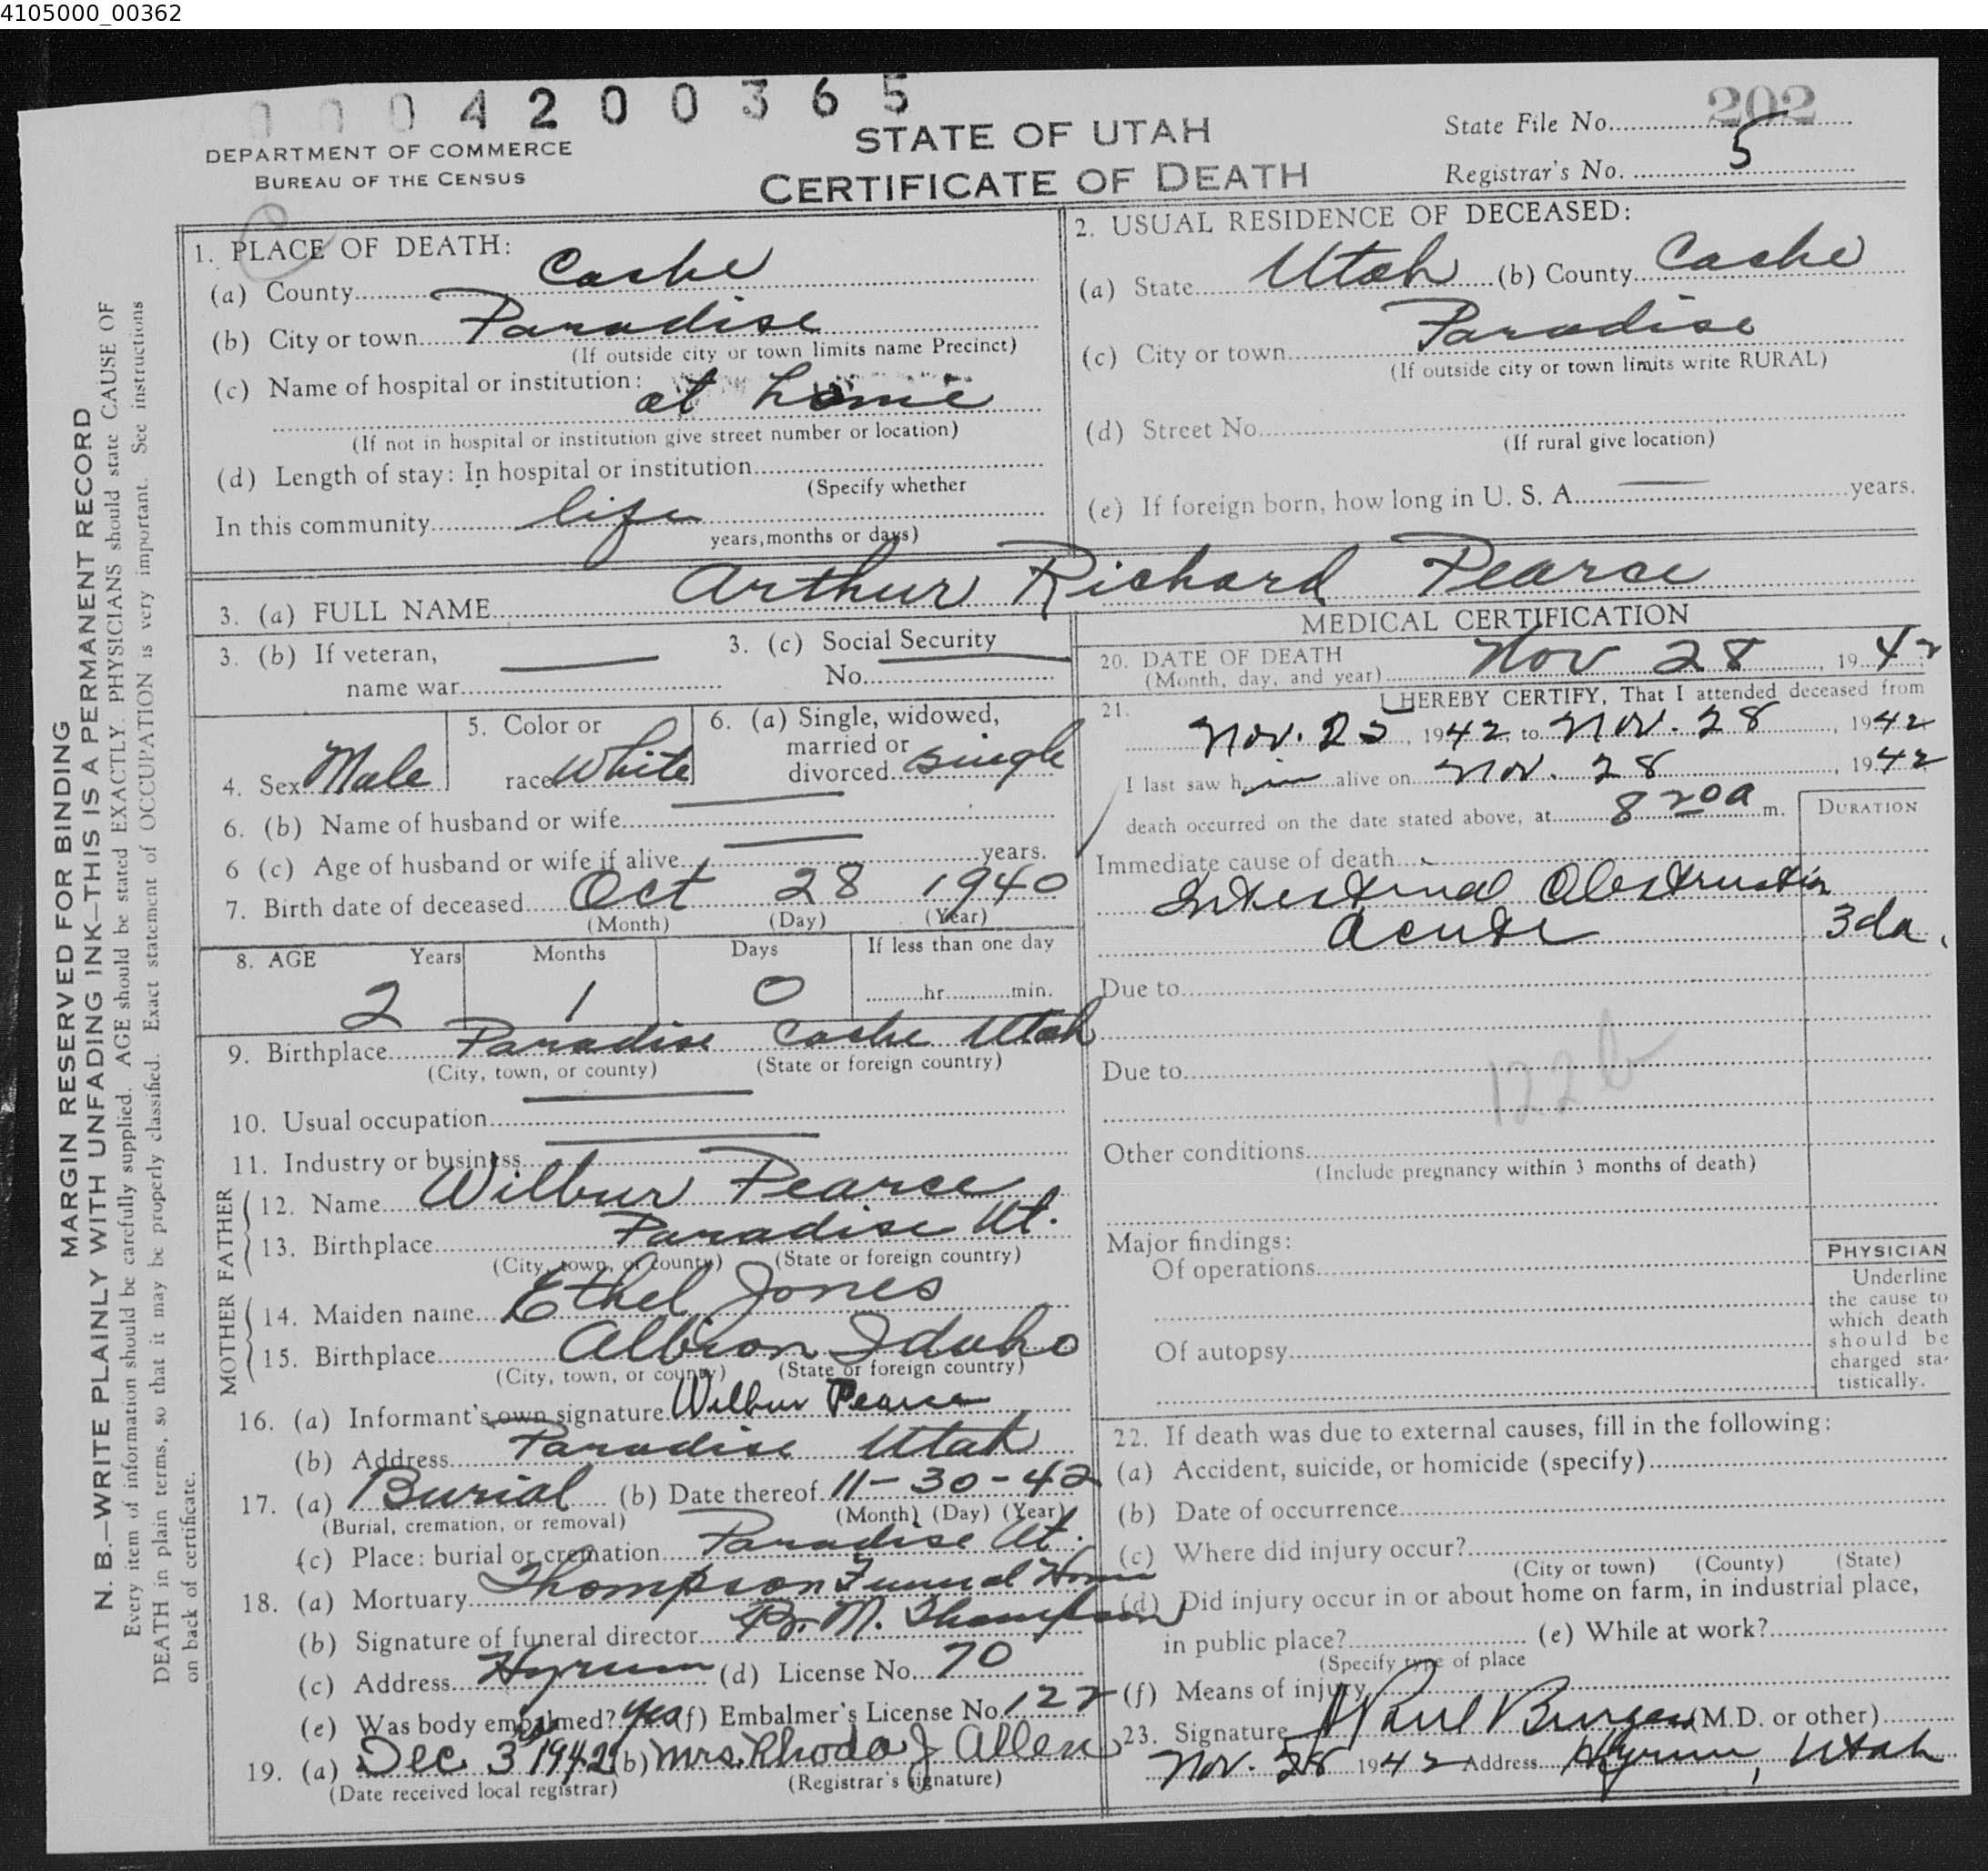 4105000_00362
0004200365
DEPARTMENT OF COMMERCE
BUREAU OF THE CENSUS
STATE OF UTAH
CERTIFICATE OF DEATH
State File No. 202
Registrar's No. 5
MARGIN RESERVED FOR BINDING
N. B.—WRITE PLAINLY WITH UNFADING INK—THIS IS A PERMANENT RECORD
Every item of information should be carefully supplied. AGE should be stated EXACTLY. PHYSICIANS should state CAUSE OF
DEATH in plain terms, so that it may be properly classified. Exact statement of OCCUPATION is very important. See instructions
on back of certificate.
1. PLACE OF DEATH:
(a) County Cache
(b) City or town Paradise
(If outside city or town limits name Precinct)
(c) Name of hospital or institution:
at home
(If not in hospital or institution give street number or location)
(d) Length of stay: In hospital or institution
(Specify whether
In this community life
years, months or days)
2. USUAL RESIDENCE OF DECEASED:
(a) State Utah (b) County Cache
(c) City or town Paradise
(If outside city or town limits write RURAL)
(d) Street No.
(If rural give location)
(e) If foreign born, how long in U. S. A. — years.
3. (a) FULL NAME Arthur Richard Pearce
3. (b) If veteran,
name war —
3. (c) Social Security
No. —
4. Sex Male
5. Color or
race White
6. (a) Single, widowed,
married or
divorced single
6. (b) Name of husband or wife —
6 (c) Age of husband or wife if alive — years.
7. Birth date of deceased Oct 28 1940
(Month) (Day) (Year)
8. AGE Years Months Days If less than one day
2 1 0 hr. min.
9. Birthplace Paradise Cache Utah
(City, town, or county) (State or foreign country)
10. Usual occupation —
11. Industry or business —
FATHER
12. Name Wilbur Pearce
13. Birthplace Paradise Ut.
(City, town, or county) (State or foreign country)
MOTHER
14. Maiden name Ethel Jones
15. Birthplace Albion Idaho
(City, town, or county) (State or foreign country)
16. (a) Informant's own signature Wilbur Pearce
(b) Address Paradise Utah
17. (a) Burial (b) Date thereof 11-30-42
(Burial, cremation, or removal) (Month) (Day) (Year)
(c) Place: burial or cremation Paradise Ut.
18. (a) Mortuary Thompson Funeral Home
(b) Signature of funeral director M. Thompson
(c) Address Hyrum (d) License No. 70
(e) Was body embalmed? yes (f) Embalmer's License No. 122
19. (a) Dec. 3 1942 (b) Mrs. Rhoda J Allen
(Date received local registrar) (Registrar's signature)
MEDICAL CERTIFICATION
20. DATE OF DEATH
(Month, day, and year) Nov 28, 1942
21. I HEREBY CERTIFY, That I attended deceased from
Nov. 25, 1942, to Nov. 28, 1942
I last saw him alive on Nov. 28, 1942
death occurred on the date stated above, at 8 20 a m.
DURATION
Immediate cause of death
Intestinal Obstruction
acute 3 da.
Due to
Due to
122b
Other conditions
(Include pregnancy within 3 months of death)
Major findings:
Of operations
Of autopsy
PHYSICIAN
Underline
the cause to
which death
should be
charged sta-
tistically.
22. If death was due to external causes, fill in the following:
(a) Accident, suicide, or homicide (specify)
(b) Date of occurrence
(c) Where did injury occur?
(City or town) (County) (State)
(d) Did injury occur in or about home on farm, in industrial place,
in public place? (e) While at work?
(Specify type of place
(f) Means of injury
23. Signature Paul Burgess (M.D. or other)
Nov. 28 1942 Address Hyrum, Utah